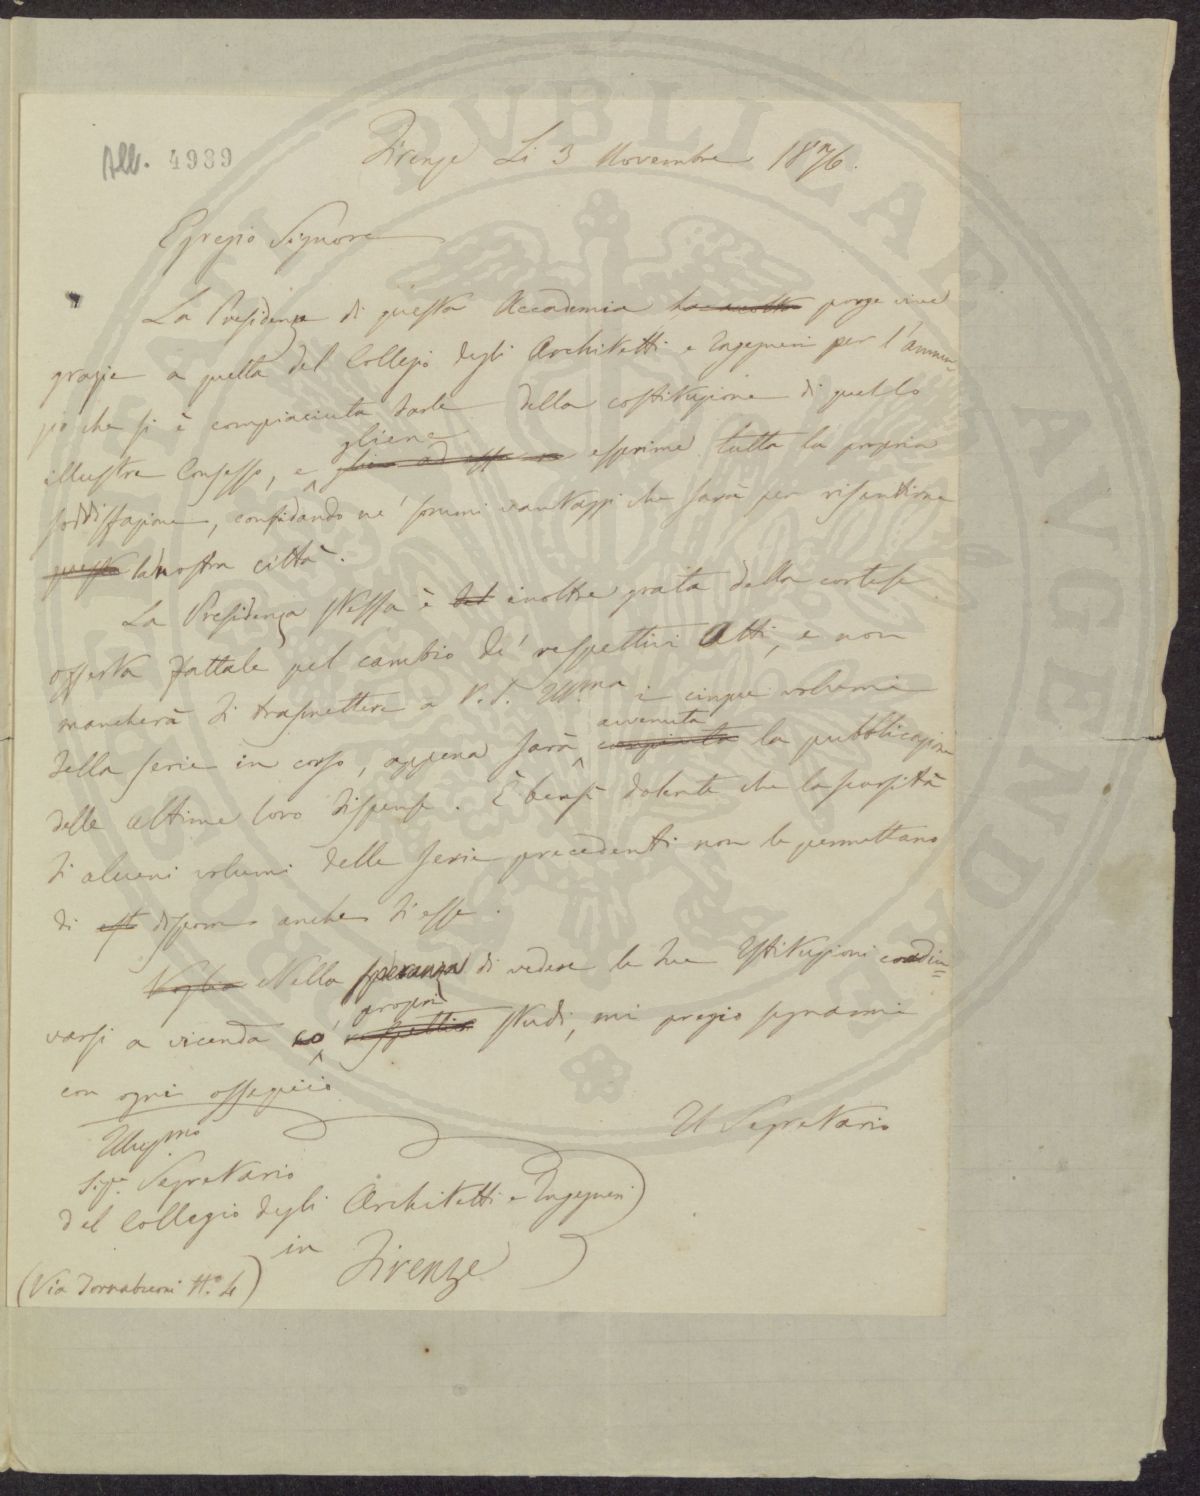 All. 4939
Firenze Li 3 Novembre 1876.
Egregio Signore
La Presidenza di questa Accademia ha accolto porge vive
grazie a quella del Collegio degli Architetti e Ingegneri per l'annun-
zio che si è compiaciuta darle della costituzione di quello
gliene
illustre Consesso, e esprime tutta la propria
soddisfazione, confidando ne' sommi vantaggi che sarà per risentirne
questa la nostra città.
La Presidenza stessa è del inoltre grata della cortese
offerta fattale pel cambio de' respettivi Atti, e non
mancherà di trasmettere a V. S. Ill.ma i cinque volumi
avvenuta
della serie in corso, appena sarà compiuta la pubblicazione
delle ultime loro dispense. È bensì dolente che la scarsità
di alcuni volumi delle serie precedenti non le permettano
di disporre anche di esse.
Voglia Nella speranza di vedere le due Istituzioni coadiu=
propri
varsi a vicenda co' respettivi studi, mi pregio segnarmi
con ogni ossequio
Il Segretario
Illus.mo
Sig.r Segretario
del Collegio degli Architetti e Ingegneri
in Firenze
(Via Tornabuoni N.o 4)
PVBLICAE